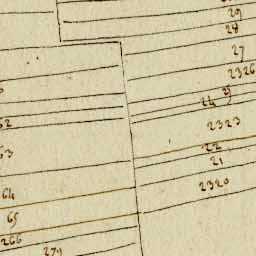 29
28
27
2326
25
24
2323
22
21
2320
62
63
64
65
266
279